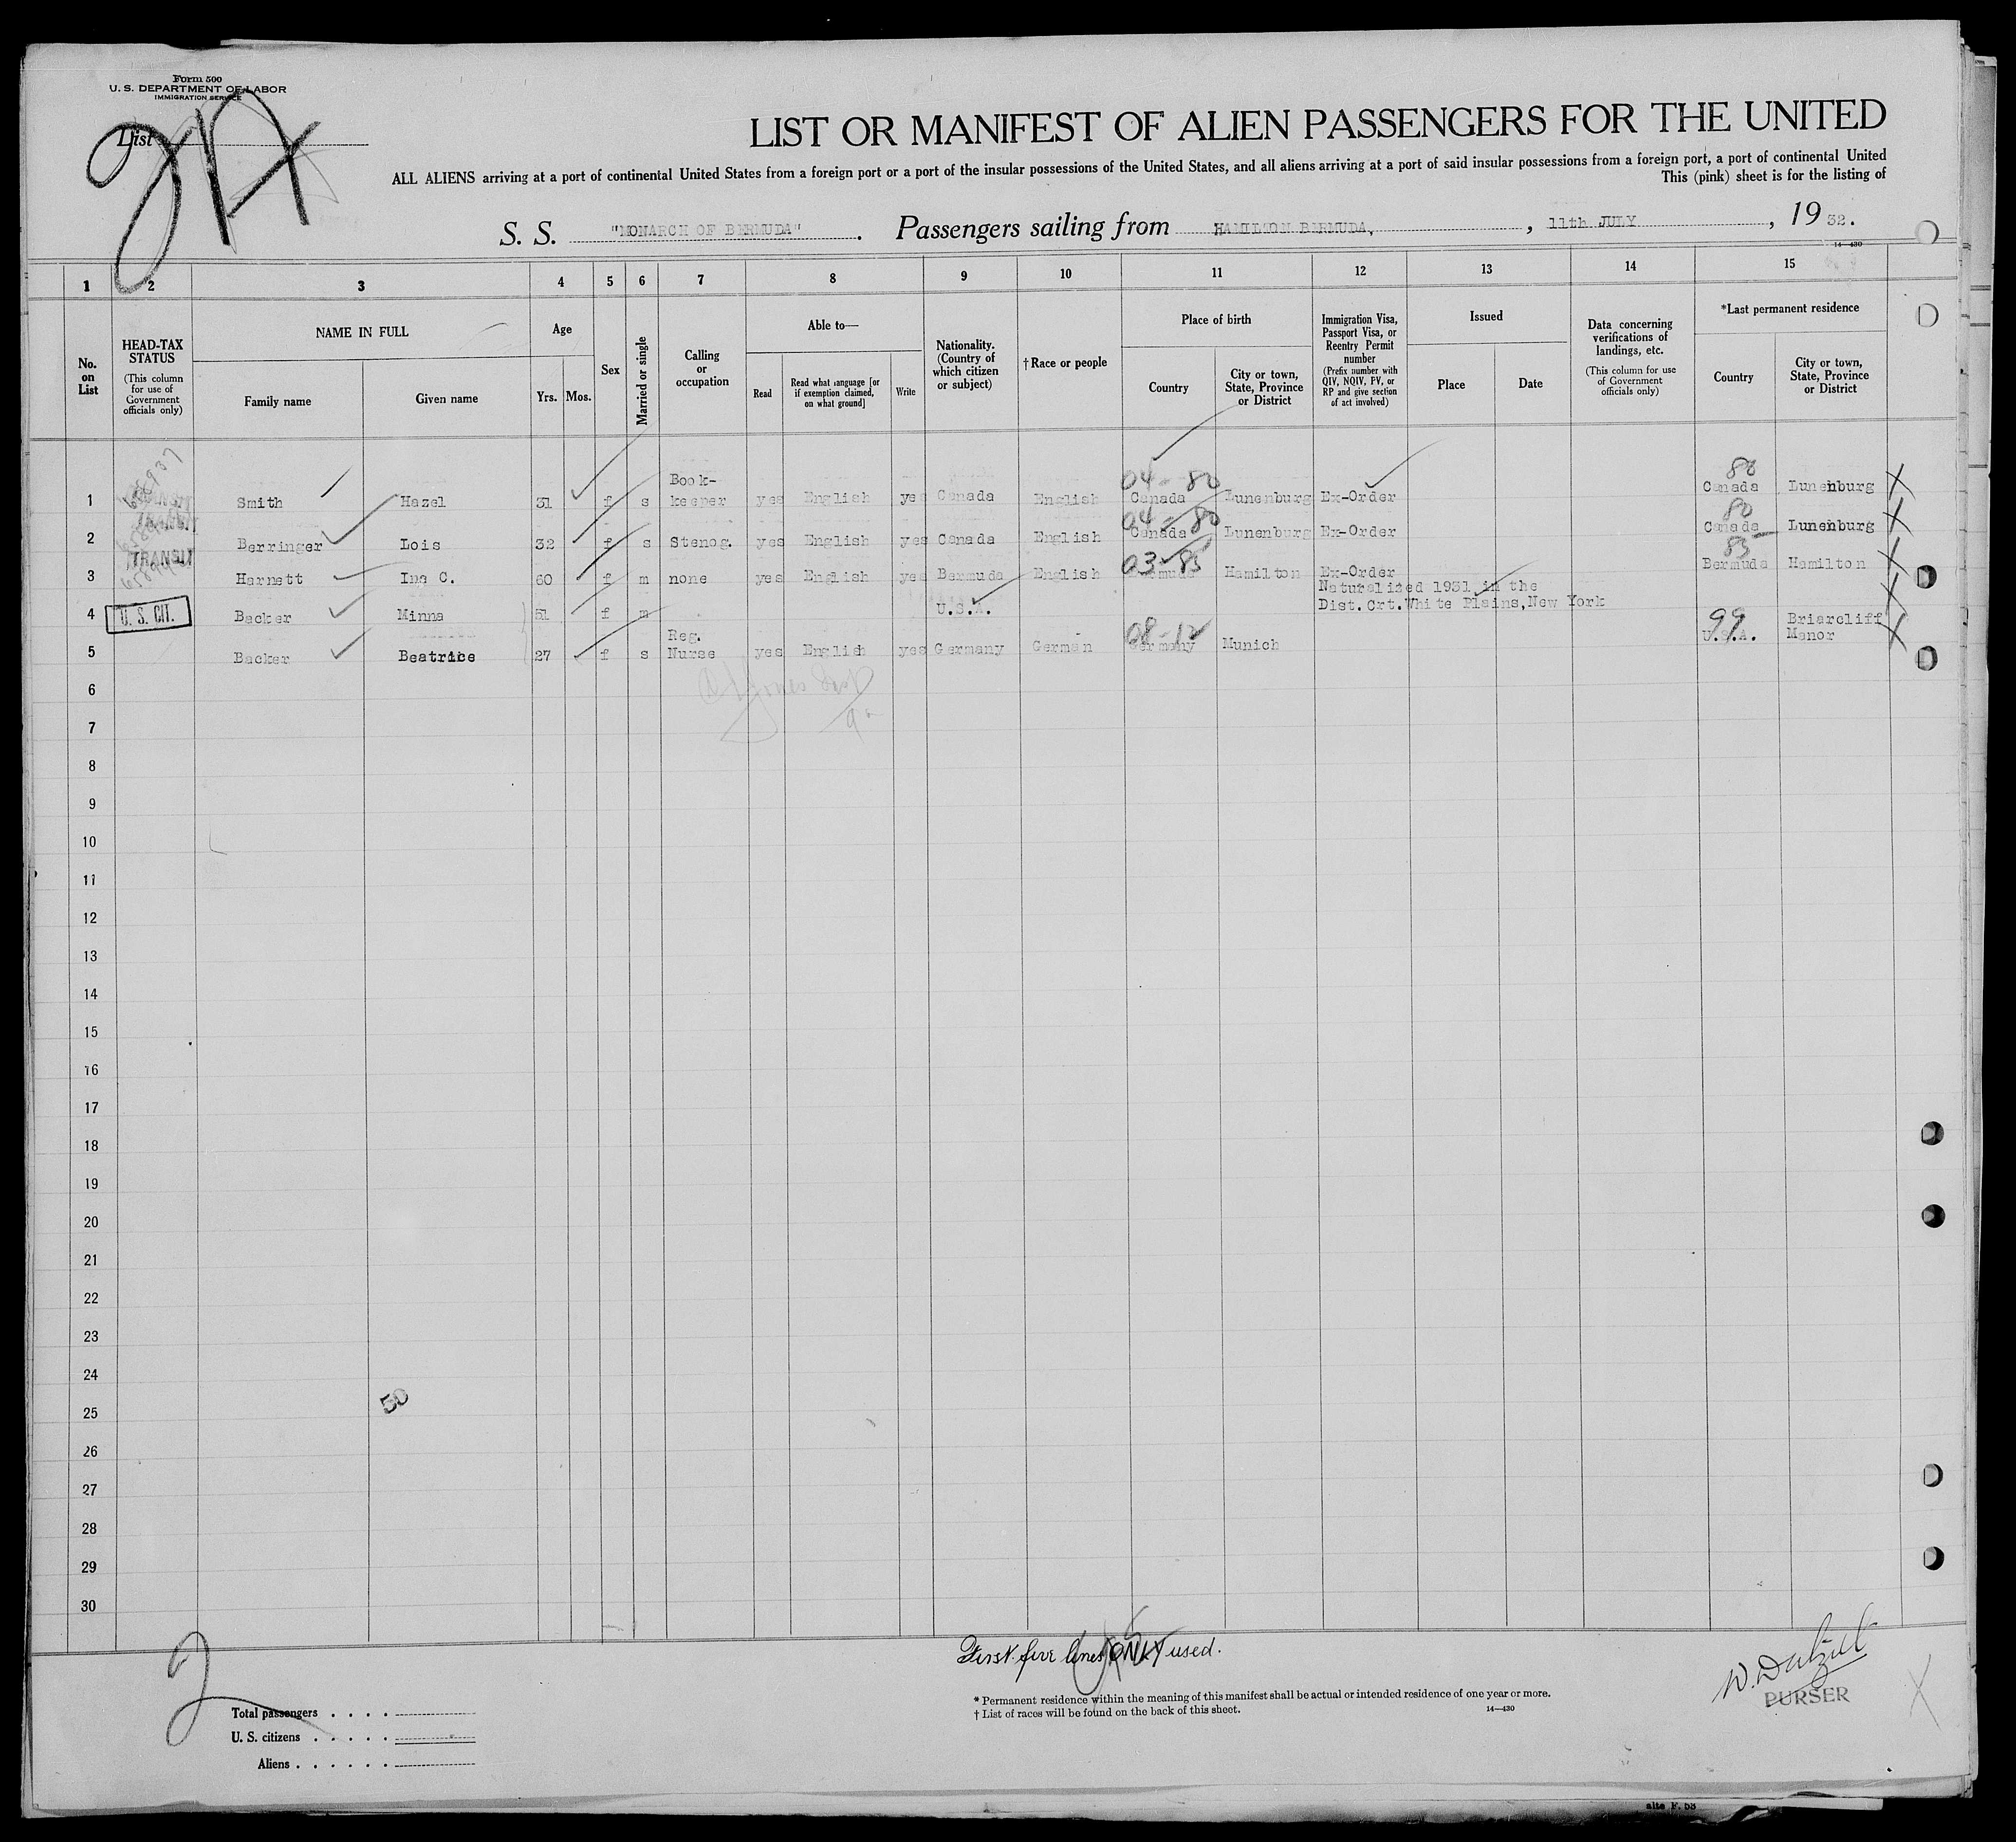 Form 500
U. S. DEPARTMENT OF LABOR
IMMIGRATION SERVICE
List
LIST OR MANIFEST OF ALIEN PASSENGERS FOR THE UNITED
ALL ALIENS arriving at a port of continental United States from a foreign port or a port of the insular possessions of the United States, and all aliens arriving at a port of said insular possessions from a foreign port, a port of continental United
This (pink) sheet is for the listing of
S. S. "MONARCH OF BERMUDA". Passengers sailing from HAMILTON BERMUDA, , 11th JULY , 19 32.
14—430
1 2 3 4 5 6 7 8 9 10 11 12 13 14 15
No. on List
HEAD-TAX STATUS
(This column for use of Government officials only)
NAME IN FULL
Family name Given name
Age
Yrs. Mos.
Sex
Married or single
Calling or occupation
Able to—
Read
Read what language [or if exemption claimed, on what ground]
Write
Nationality. (Country of which citizen or subject)
† Race or people
Place of birth
Country
City or town, State, Province or District
Immigration Visa, Passport Visa, or Reentry Permit number
(Prefix number with QIV, NQIV, PV, or RP and give section of act involved)
Issued
Place Date
Data concerning verifications of landings, etc.
(This column for use of Government officials only)
*Last permanent residence
Country
City or town, State, Province or District
04-80 80
1 Smith Hazel 31 f s Book-keeper yes English yes Canada English Canada Lunenburg Ex-Order Canada Lunenburg
04-80 80
2 Berringer Lois 32 f s Stenog. yes English yes Canada English Canada Lunenburg Ex-Order Canada Lunenburg
TRANSIT
03-85 85
3 Harnett Ina C. 60 f m none yes English yes Bermuda English Bermuda Hamilton Ex-Order Bermuda Hamilton
4 U. S. CIT. Backer Minna 51 f m U.S.A. Naturalized 1931 in the
Dist.Crt.White Plains,New York
08-12 99
5 Backer Beatrice 27 f s Reg. Nurse yes English yes Germany German Germany Munich U.S.A. Briarcliff Manor
6
7
8
9
10
11
12
13
14
15
16
17
18
19
20
21
22
23
24
50
25
26
27
28
29
30
First five lines ONLY used.
PURSER
* Permanent residence within the meaning of this manifest shall be actual or intended residence of one year or more.
† List of races will be found on the back of this sheet.
14—430
Total passengers
U. S. citizens
Aliens